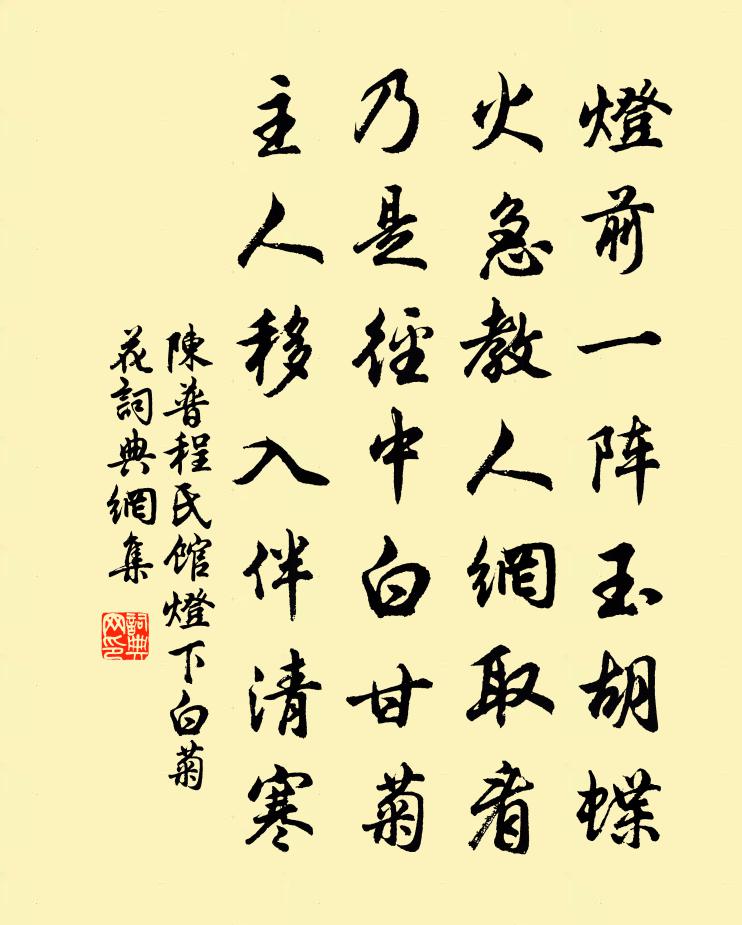 燈前一阵玉胡蝶
火急教人網取看
乃是徑中白甘菊
主人移入伴清寒
陳普程氏館燈下白菊
花詞典網集
詞典
网印